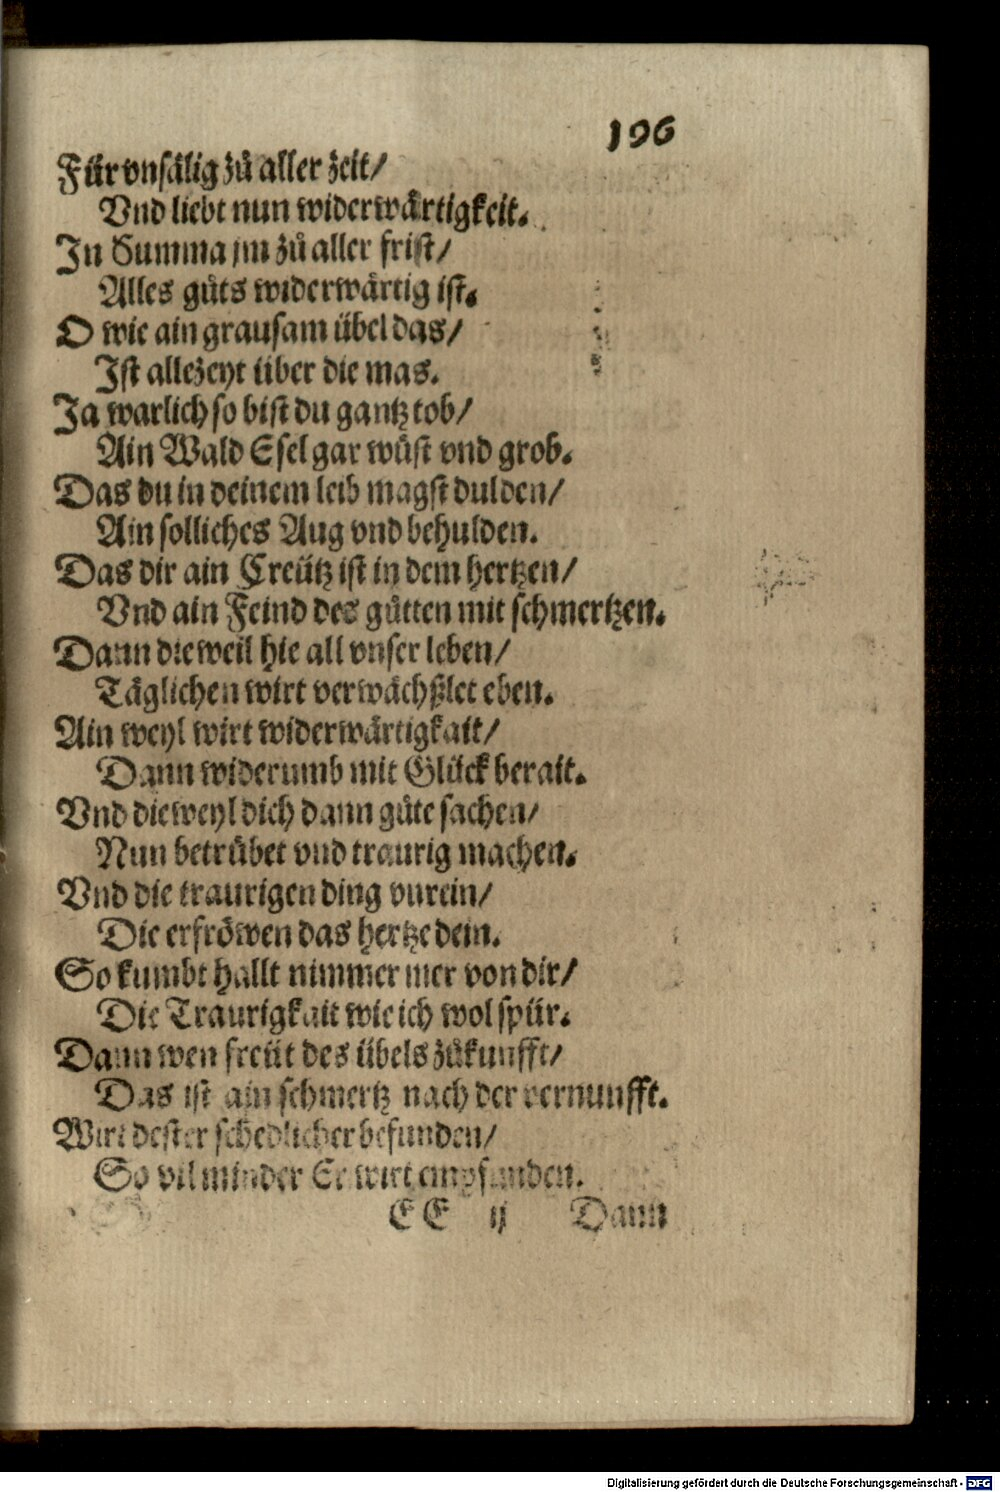 196
Für vnsälig zů aller zeit/
Vnd liebt nun widerwärtigkeit.
In Summa jm zů aller frist/
Alles gůts widerwärtig ist.
O wie ain grausam übel das/
Ist allezeyt über die mas.
Ja warlich so bist du gantz tob/
Ain Wald Esel gar wüst vnd grob.
Das du in deinem leib magst dulden/
Ain solliches Aug vnd behulden.
Das dir ain Creütz ist in dem hertzen/
Vnd ain Feind des gůtten mit schmertzen.
Dann dieweil hie all vnser leben/
Täglichen wirt verwächßlet eben.
Ain weyl wirt widerwärtigkait/
Dann widerumb mit Glück berait.
Vnd dieweyl dich dann gůte sachen/
Nun betrübet vnd traurig machen.
Vnd die traurigen ding vnrein/
Die erfröwen das hertze dein.
So kumbt hallt nimmer mer von dir/
Die Traurigkait wie ich wol spür.
Dann wen freüt des übels zůkunfft/
Das ist ain schmertz nach der vernunfft.
Wirt dester schedlicher befunden/
So vil minder Er wirt empfunden.
EE ij Dann
Digitalisierung gefördert durch die Deutsche Forschungsgemeinschaft - DFG